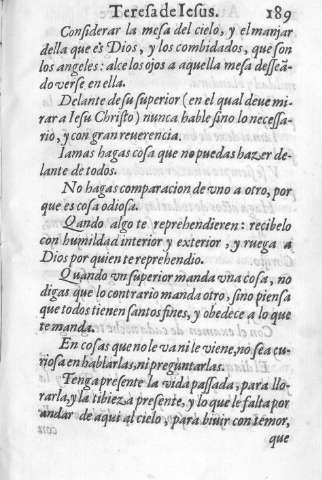 Teresa de Iesus. 189
Considerar la mesa del cielo, y el manjar
della que es Dios, y los combidados, que son
los angeles: alce los ojos a aquella mesa desseã-
do verse en ella.
Delante de su superior (en el qual deue mi-
rar a Iesu Christo) nunca hable sino lo necessa-
rio, y con gran reuerencia.
Iamas hagas cosa que no puedas hazer de-
lante de todos.
No hagas comparacion de vno a otro, por
que es cosa odiosa.
Qando algo te reprehendieren: recibelo
con humildad interior y exterior, y ruega a
Dios por quien te reprehendio.
Quando vn superior manda vna cosa, no
digas que lo contrario manda otro, sino piensa
que todos tienen santos fines, y obedece a lo que
te manda.
En cosas que no le va ni le viene, no sea cu-
riosa en hablarlas, ni preguntarlas.
Tenga presente la vida passada, para llo-
rarla, y la tibieza presente, y lo que le falta por
andar de aqui al cielo, para biuir con temor,
que